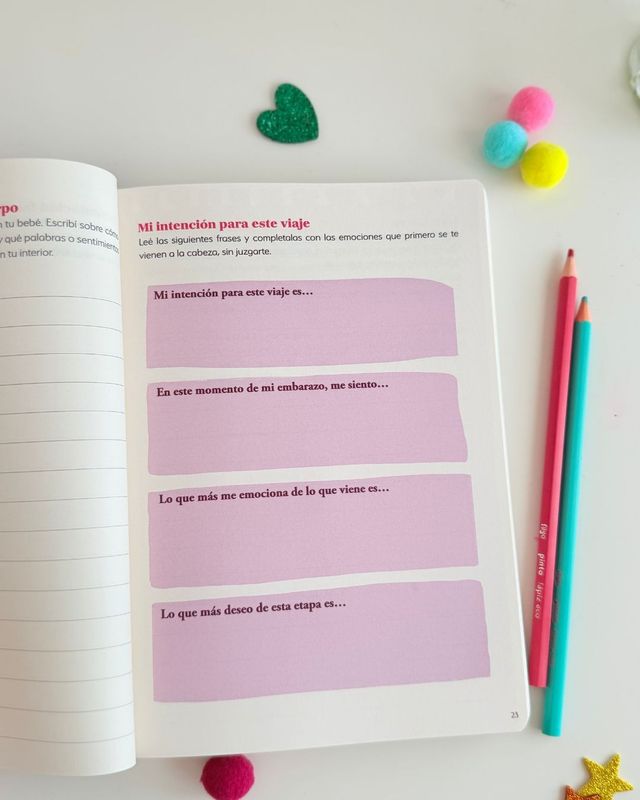 rpo
n tu bebé. Escribí sobre cómo
y qué palabras o sentimiento
n tu interior.
Mi intención para este viaje
Leé las siguientes frases y completalas con las emociones que primero se te
vienen a la cabeza, sin juzgarte.
Mi intención para este viaje es...
En este momento de mi embarazo, me siento...
Lo que más me emociona de lo que viene es...
Lo que más deseo de esta etapa es...
23
filgo pinto lápiz eco